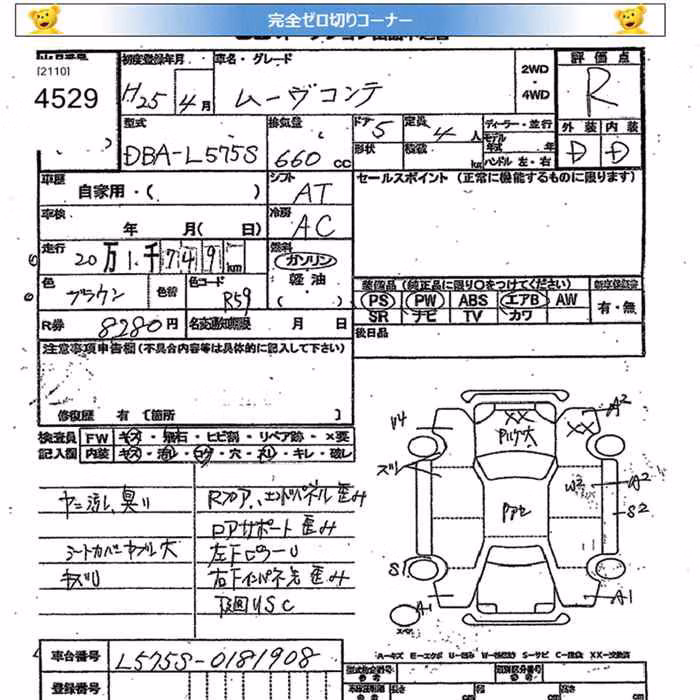 完全ゼロ切りコーナー
[2110]
4529
初度登録年月
H25年4月
車名・グレード
ムーヴコンテ
2WD
・
4WD
評価点
R
型式
DBA-L575S
排気量
660 cc
ドア
5
定員
4人
形状
積載
kg
ディーラー・並行
モデル
年式 年
ハンドル 左・右
外装 内装
D D
車歴
自家用・( )
シフト
AT
セールスポイント (正常に機能するものに限ります)
車検
年 月( 日)
冷房
AC
走行
20万1千749km
燃料
ガソリン
軽油
( )
色
ブラウン
色替
色コード
R59
装備品 (純正品に限り○をつけてください)
PS PW ABS エアB AW
SR ナビ TV カワ
有・無
R券
8280円
名変通知期限 月 日
後日品
注意事項申告欄 (不具合内容等は具体的に記入して下さい)
修復歴 有 〔箇所 〕
検査員
記入欄
FW キズ・飛石・ヒビ割・リペア跡・×要
内装 キズ・汚レ・コゲ・穴・スレ・キレ・破レ
ヤニ汚レ、臭い
シートカバーヤブレ大
キズU
Rフロア、エンドパネル歪み
ロアサポート歪み
左Fピラー U
右Fインパネ先歪み
下回りSC
U4
XX
A2
XX
ズレ
W2
A2
S2
S1
A1
A1
スペア
A=キズ E=エクボ U=凹み W=(補修跡) S=サビ C=腐食 XX=交換済
車台番号
L575S-0181908
登録番号
型式指定番号
参考
類別区分番号
参考
長さ
cm
cm
cm